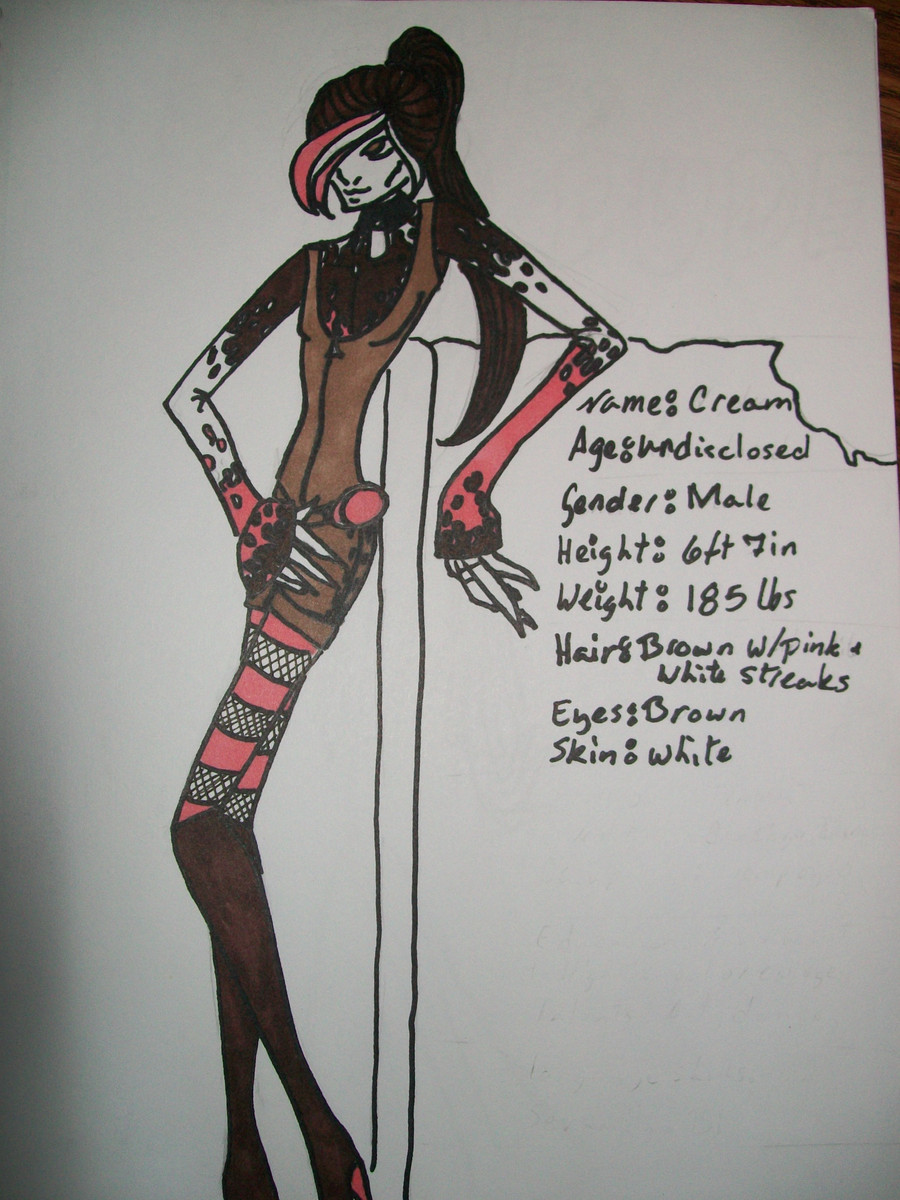 Name: Cream
Age: undisclosed
Gender: Male
Height: 6ft 7in
Weight: 185 lbs
Hair: Brown w/pink +
white streaks
Eyes: Brown
Skin: white